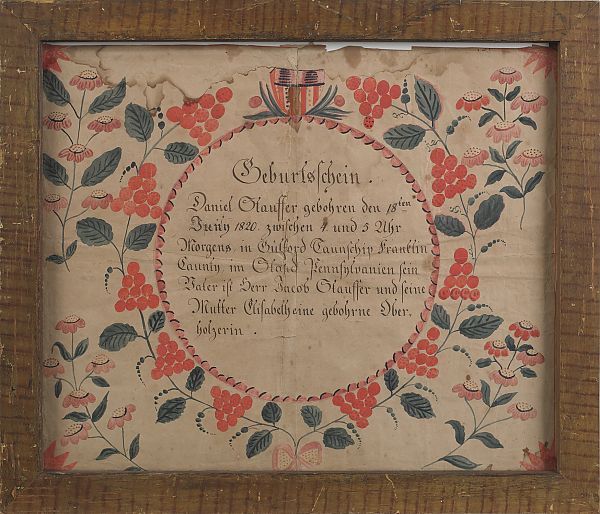 Geburtsschein.
Daniel Stauffer gebohren den 18ten
Juny 1820. zwischen 4 und 5 Uhr
Morgens in Guilford Taunschip Franklin
Caunty im Staad Pennsylvanien sein
Vater ist Herr Jacob Stauffer und seine
Mutter Elisabeth eine gebohrne Ober.
holzerin.